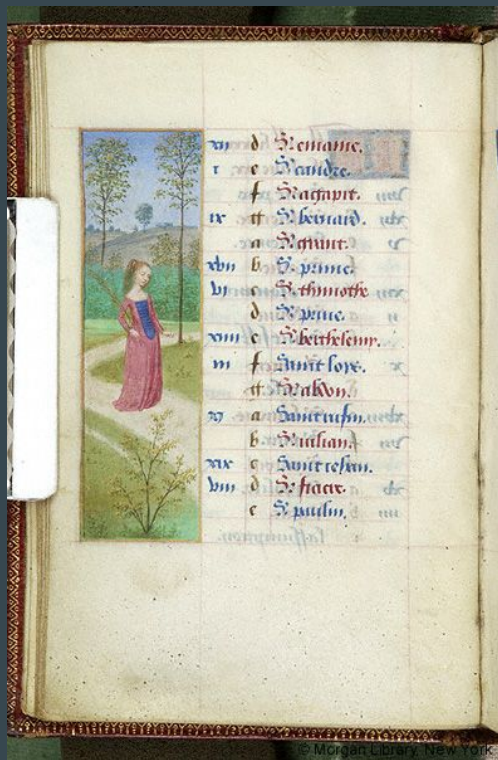 d S.
i e S.
f S. agapit.
ix g S. bernard.
a S.
xvii b S. prime.
vi c S. thimothe
d S.
xiiii e S. berthelemy.
iii f Saint loys.
g S. abdon.
xi a Saint rufin.
b S. iulian.
xix c Saint
viii d S. fiacre.
e S. paulin.
© Morgan Library, New York